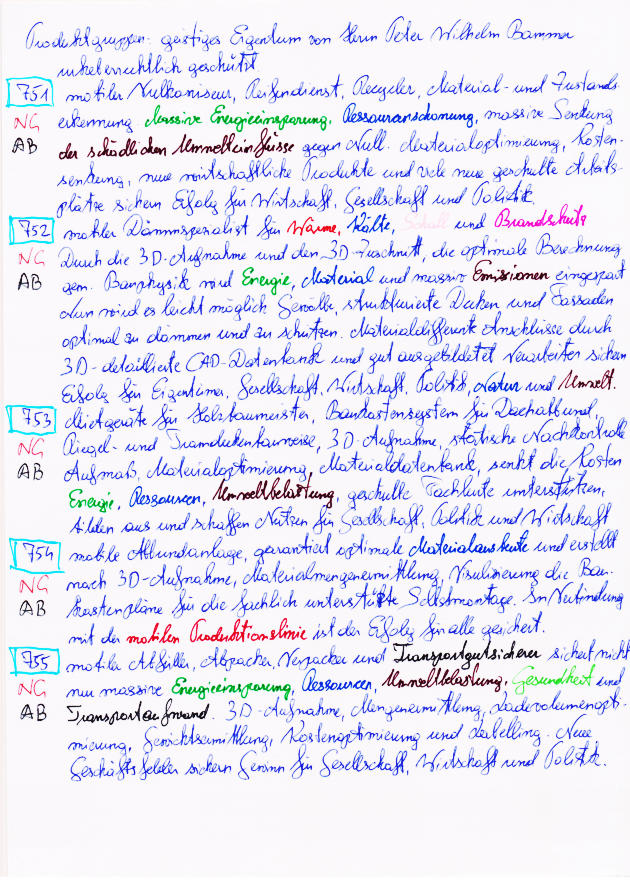 Produktgruppen: geistiges Eigentum von Herrn Peter Wilhelm Bammer
urheberrechtlich geschützt
751 mobiler Vulkaniseur, Reifendienst, Recycler, Material- und Zustands-
NG erkennung Massive Energieeinsparung, Ressourcenschonung, massive Senkung
AB der schädlichen Umwelteinflüsse gegen Null. Materialoptimierung, Kosten-
senkung, neue wirtschaftliche Produkte und viele neue geschulte Arbeits-
plätze sichern Erfolg für Wirtschaft, Gesellschaft und Politik.
752 mobiler Dämmspezialist für Wärme, Kälte, Schall und Brandschutz
NG Durch die 3D-Aufnahme und den 3D-Zuschnitt, die optimale Berechnung
AB gem. Bauphysik wird Energie, Material und massiv Emissionen eingespart
Nun wird es leicht möglich Gewölbe, strukturierte Decken und Fassaden
optimal zu dämmen und zu schützen. Materialdifferente Anschlüsse durch
3D-detaillierte CAD-Datenbank und gut ausgebildete Verarbeiter sichern
Erfolg für Eigentümer, Gesellschaft, Wirtschaft, Politik, Natur und Umwelt.
753 Mietgeräte für Holzbaumeister, Baukastensystem für Dachabbund,
NG Riegel- und Tramdeckenbauweise, 3D-Aufnahme, statische Nachkontrolle
AB Aufmaß, Materialoptimierung, Materialdatenbank, senkt die Kosten
Energie, Ressourcen, Umweltbelastung, geschulte Fachleute unterstützen,
bilden aus und schaffen Nutzen für Gesellschaft, Politik und Wirtschaft
754 mobile Abbundanlage, garantiert optimale Materialausbeute und erstellt
NG nach 3D-Aufnahme, Materialmengenermittlung, Visualisierung die Bau-
AB kastenpläne für die fachlich unterstützte Selbstmontage. In Verbindung
mit der mobilen Produktionslinie ist der Erfolg für alle gesichert.
755 mobiler Abfüller, Abpacker, Verpacker und Transportgutsicherer sichert nicht
NG nur massive Energieeinsparung, Ressourcen, Umweltbelastung, Gesundheit und
AB Transportaufwand. 3D-Aufnahme, Mengenermittlung, Ladevolumenopti-
mierung, Gewichtsermittlung, Kostenoptimierung und Labelling. Neue
Geschäftsfelder sichern Gewinn für Gesellschaft, Wirtschaft und Politik.